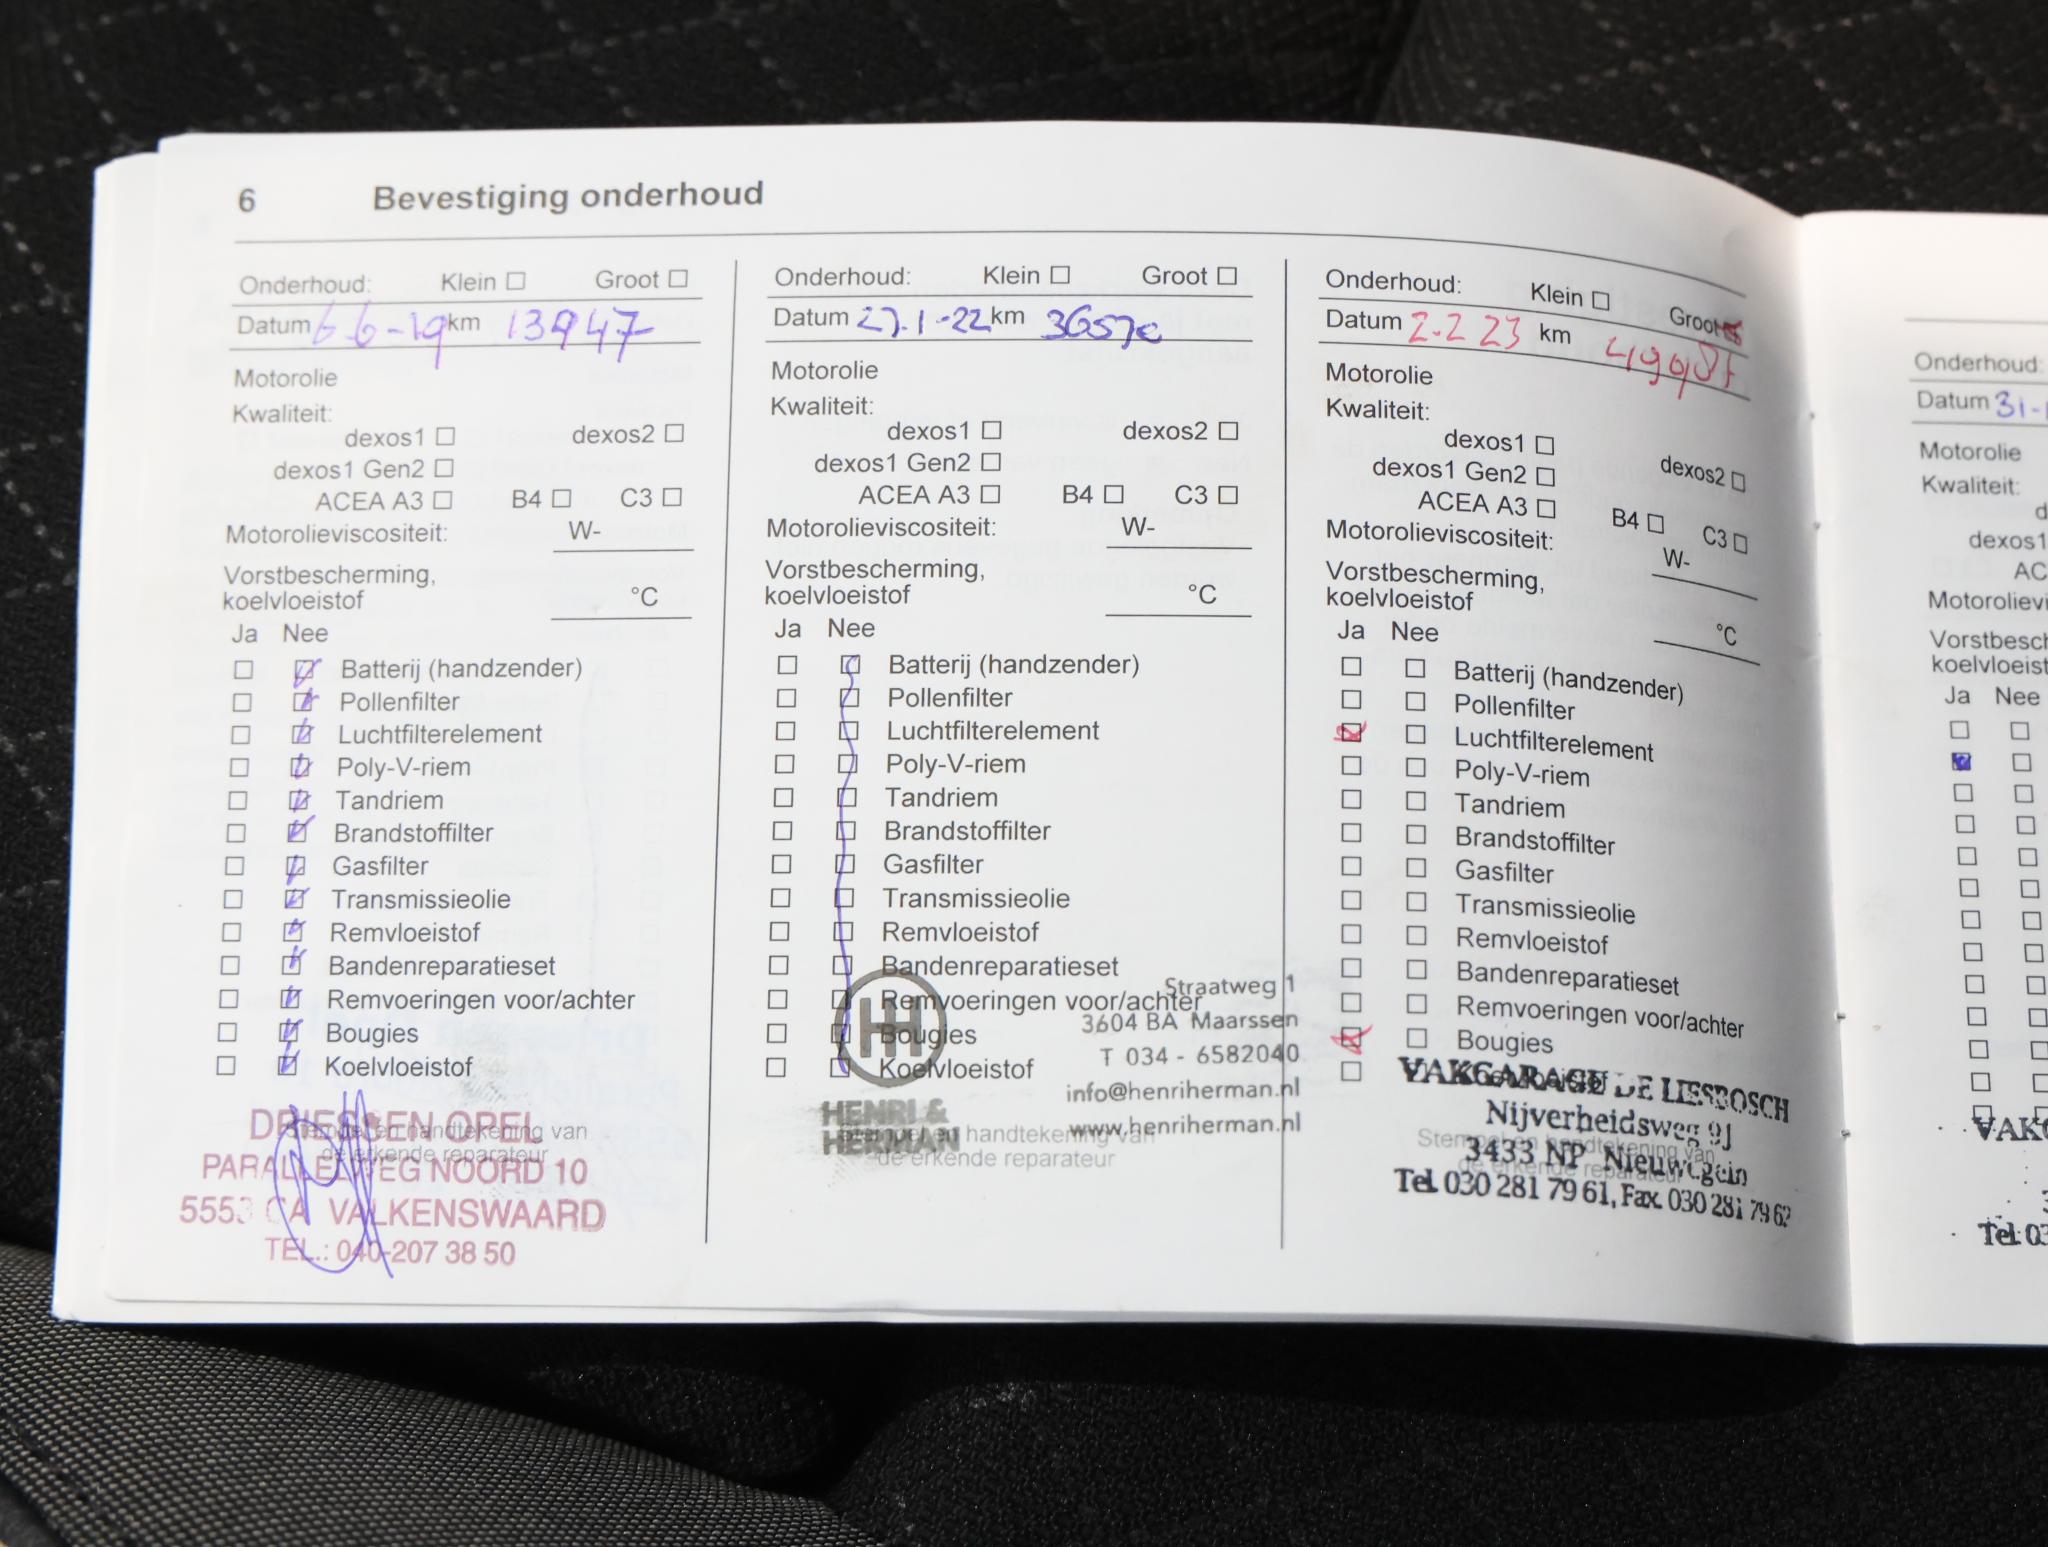 6 Bevestiging onderhoud
Onderhoud: Klein Groot
Datum 6-6-19 km 13947
Motorolie
Kwaliteit:
dexos1 dexos2
dexos1 Gen2
ACEA A3 B4 C3
Motorolieviscositeit: W-
Vorstbescherming,
koelvloeistof °C
Ja Nee
Batterij (handzender)
Pollenfilter
Luchtfilterelement
Poly-V-riem
Tandriem
Brandstoffilter
Gasfilter
Transmissieolie
Remvloeistof
Bandenreparatieset
Remvoeringen voor/achter
Bougies
Koelvloeistof
Stempel en handtekening van
de erkende reparateur
DRIESSEN OPEL
PARALLELWEG NOORD 10
5553 CA VALKENSWAARD
TEL.: 040-207 38 50
Onderhoud: Klein Groot
Datum 27.1-22 km
Motorolie
Kwaliteit:
dexos1 dexos2
dexos1 Gen2
ACEA A3 B4 C3
Motorolieviscositeit: W-
Vorstbescherming,
koelvloeistof °C
Ja Nee
Batterij (handzender)
Pollenfilter
Luchtfilterelement
Poly-V-riem
Tandriem
Brandstoffilter
Gasfilter
Transmissieolie
Remvloeistof
Bandenreparatieset
Remvoeringen voor/achter
Bougies
Koelvloeistof
Straatweg 1
3604 BA Maarssen
T 034 - 6582040
info@henriherman.nl
www.henriherman.nl
HENRI &
HERMAN
Stempel en handtekening van
de erkende reparateur
Onderhoud: Klein Groot
Datum 2.2 23 km
Motorolie
Kwaliteit:
dexos1 dexos2
dexos1 Gen2
ACEA A3 B4 C3
Motorolieviscositeit: W-
Vorstbescherming,
koelvloeistof °C
Ja Nee
Batterij (handzender)
Pollenfilter
Luchtfilterelement
Poly-V-riem
Tandriem
Brandstoffilter
Gasfilter
Transmissieolie
Remvloeistof
Bandenreparatieset
Remvoeringen voor/achter
Bougies
VAKGARAGE DE LIESBOSCH
Nijverheidsweg 9J
3433 NP Nieuwegein
Tel. 030 281 79 61, Fax. 030 281 79 62
Stempel en handtekening van
de erkende reparateur
Onderhoud:
Datum 31-
Motorolie
Kwaliteit:
d
dexos1
AC
Motorolievi
Vorstbesch
koelvloeist
Ja Nee
VAKG
Tel. 03